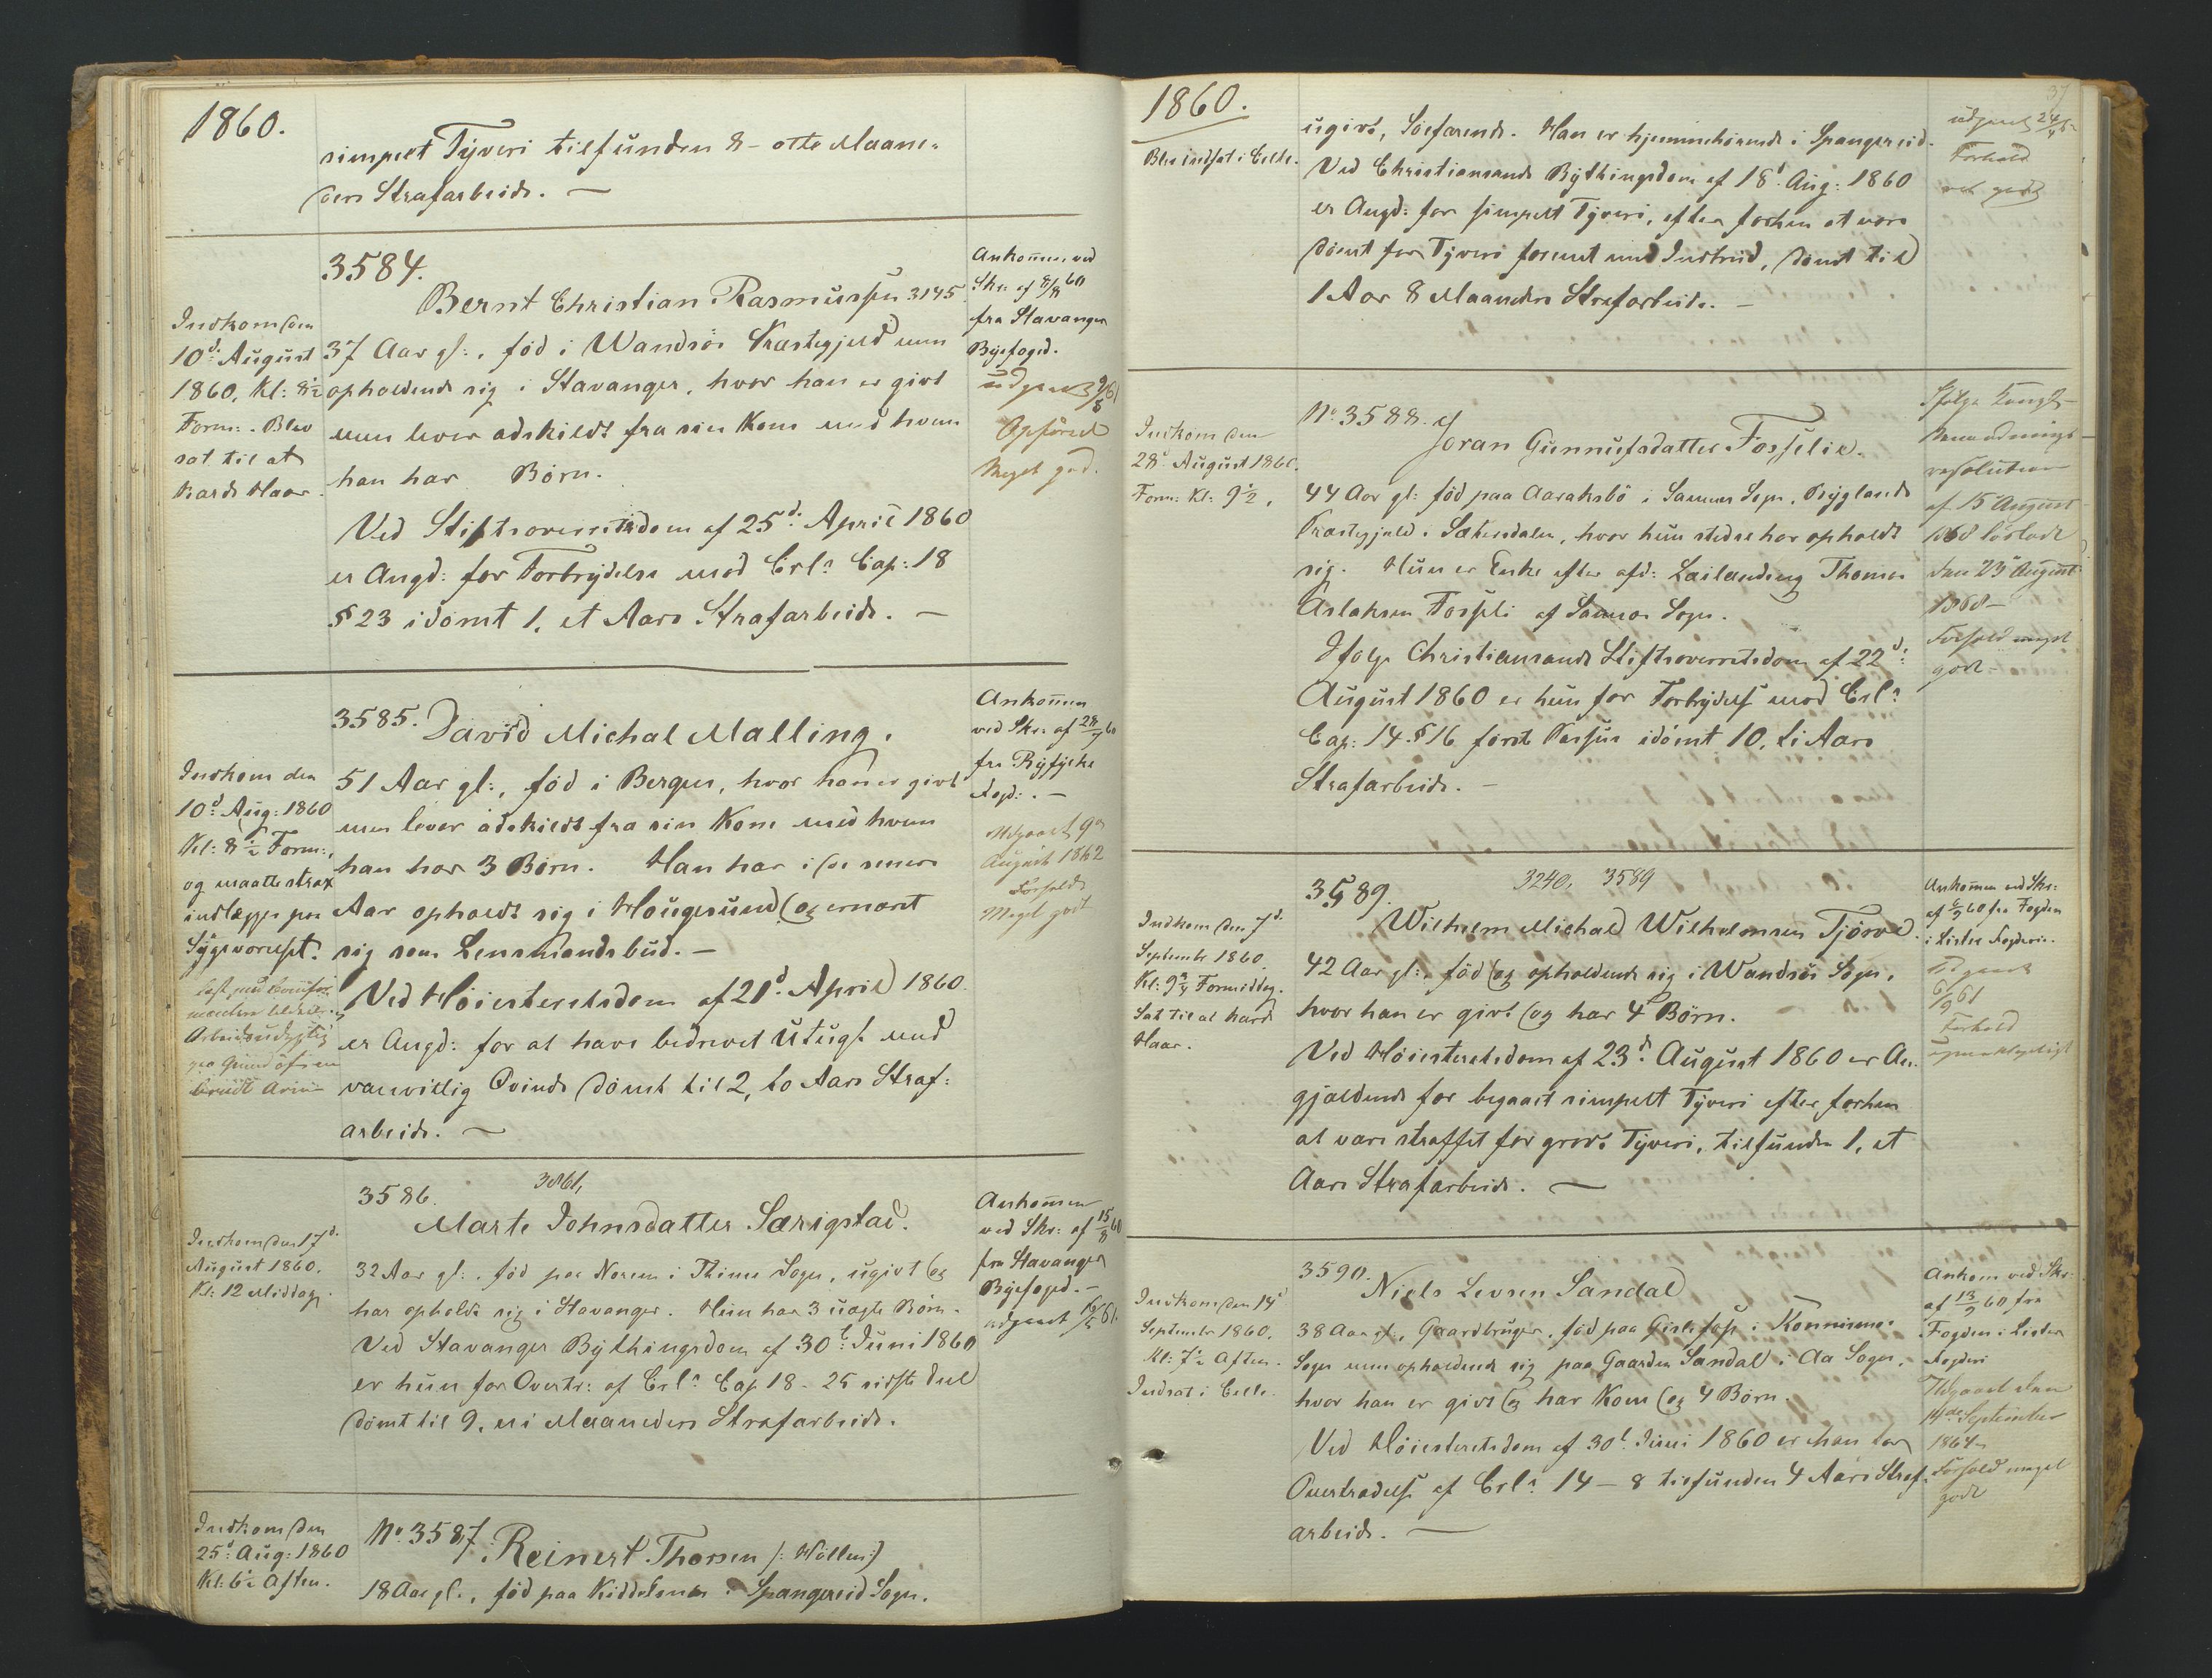 1860.
simpelt Tyveri tilfunden 8 - otte Maane-
ders Strafarbeide. —
3584.
Bernt Christian Rasmussen 3145
Indkom den
10d: August
1860, Kl: 8½
Form:. Blev
sat til at
karde Haar.
37 Aar gl:, fød i Wandsø Præstegjeld men
opholdende sig i Stavanger, hvor han er givt
men lever adskildt fra sin Kone med hvem
han har Børn.
Ved Stiftsoverretsdom af 25d: April 1860
er Angd: for Forbrydelse mod Crln Cap: 18
§ 23 idømt 1, et Aars Strafarbeide. —
Ankommen ved
Skr: af 8/8 60
fra Stavanger
Byefoged.
udgaaet 9/8 61
Opførsel
Meget god.
3585. David Michal Malling.
Indkom den
10d: Aug: 1860
Kl: 8½ Form:,
og maatte strax
indlægges paa
Sygeværelset.
Arbeidsudygtig
paa Grund af en
brudt Arm
51 Aar gl:, fød i Bergen, hvor han er givt
men lever adskildt fra sin Kone med hvem
han har 3 Børn. Han har i de senere
Aar opholdt sig i Hougesund og ernæret
sig som Lensmandsbud. —
Ved Høiesteretsdom af 21d: April 1860
er Angd: for at have bedrevet Utugt med
vanvittig Qvinde dømt til 2, to Aars Straf:
arbeide. —
Ankommen
ved Skr: af 28/7 60
fra Ryfylke
Fogd:. —
Udgaaet 9de
August 1862
Forhold
Meget godt
3586. 3861,
Marte Johnsdatter Særigstad.
Indkom den 17d:
August 1860.
Kl: 12 Middag.
32 Aar gl:, fød paa Norem i Thime Sogn, ugivt og
har opholdt sig i Stavanger. Hun har 3 uægte Børn.
Ved Stavanger Bythingsdom af 30t: Juni 1860
er hun for Overtr: af Crln Cap 18 - 25 sidste Deel
dømt til 9, ni Maaneders Strafarbeide.
Ankommen
ved Skr: af 15/8 60
fra Stavanger
Byefoged. —
udgaaet 16/5 61.
No. 3587. Reinert Thorsen /: Høllen :/
Indkom den
25d: Aug: 1860
Kl: 6½ Aften.
18 Aar gl:, fød paa Kiddelsnes i Spangereid Sogn.
1860.
37
Blev indsat i Celle.
ugivt, Søefarende. Han er hjemmehørende i Spangereid.
Ved Christiansands Bythingsdom af 18d: Aug: 1860
er Angd: for simpelt Tyveri, efter forhen at være
dømt for Tyveri forenet med Indbrud, dømt til
1 Aar 8 Maaneders Strafarbeide. —
udgaaet 24/4 62
Forhold
ret godt
No. 3588.
Joran Gunnufsdatter Fosselie.
Indkom den
28d: August 1860.
Form: Kl: 9½.
44 Aar gl: fød paa Aaraksbø i Sannes Sogn, Bygland
Præstegjæld i Sætersdalen, hvor hun stedse har opholdt
sig. Hun er Enke efter afd: Leilænding Thomas
Aslaksen Fosseli af Sannes Sogn.
Ifølge Christiansands Stiftsoverretsdom af 22d:
August 1860 er hun for Forbrydelse mod Crln
Cap: 14. § 16 første Passus idømt 10, ti Aars
Strafarbeide. —
Ifølge Kongl-
Benaadnings-
resolution
af 15 August
1868 løsladt
den 29 August
1868 —
Forhold meget
godt —
3589. 3240, 3589
Wilhelm Michael Wilhelmsen Tjørve.
Indkom den 7d:
September 1860.
Kl: 9¾ Formiddag.
Sat til at karde
Haar.
42 Aar gl:, fød og opholdende sig i Wandsø Sogn,
hvor han er givt og har 4 Børn.
Ved Høiesteretsdom af 23d: August 1860 er An-
gjældende for begaaet simpelt Tyveri efter forhen
at være straffet for grovt Tyveri, tilfunden 1, et
Aars Strafarbeide. —
Ankommen ved Skr:
af 6/9 60 fra Fogden
i Lister Fogderie.
Udgaaet
6/9 61
Forhold
upaaklageligt
3590. Niels Levsen Sandal
Indkom den 14d
September 1860.
Kl: 7½ Aften.
Indsat i Celle.
38 Aar gl:, Gaardbruger, fød paa Gislefos i Konnismo
Sogn men opholdende sig paa Gaarden Sandal i Aa Sogn,
hvor han er givt og har Kone og 4 Børn.
Ved Høiesteretsdom af 30t. Juni 1860 er han for
Overtrædelse af Crln 14 — 8 tilfunden 4 Aars Straf-
arbeide. —
Ankom ved Skr:
af 13/9 60 fra
Fogden i Lister
Fogderi
Udgaaet den
14de September
1864.
Forhold meget
godt